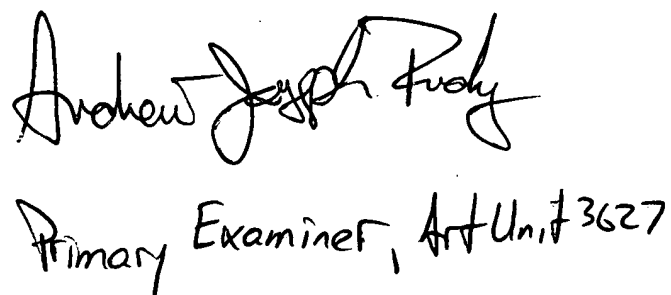 Andrew Joseph Rudy
Primary Examiner, Art Unit 3627